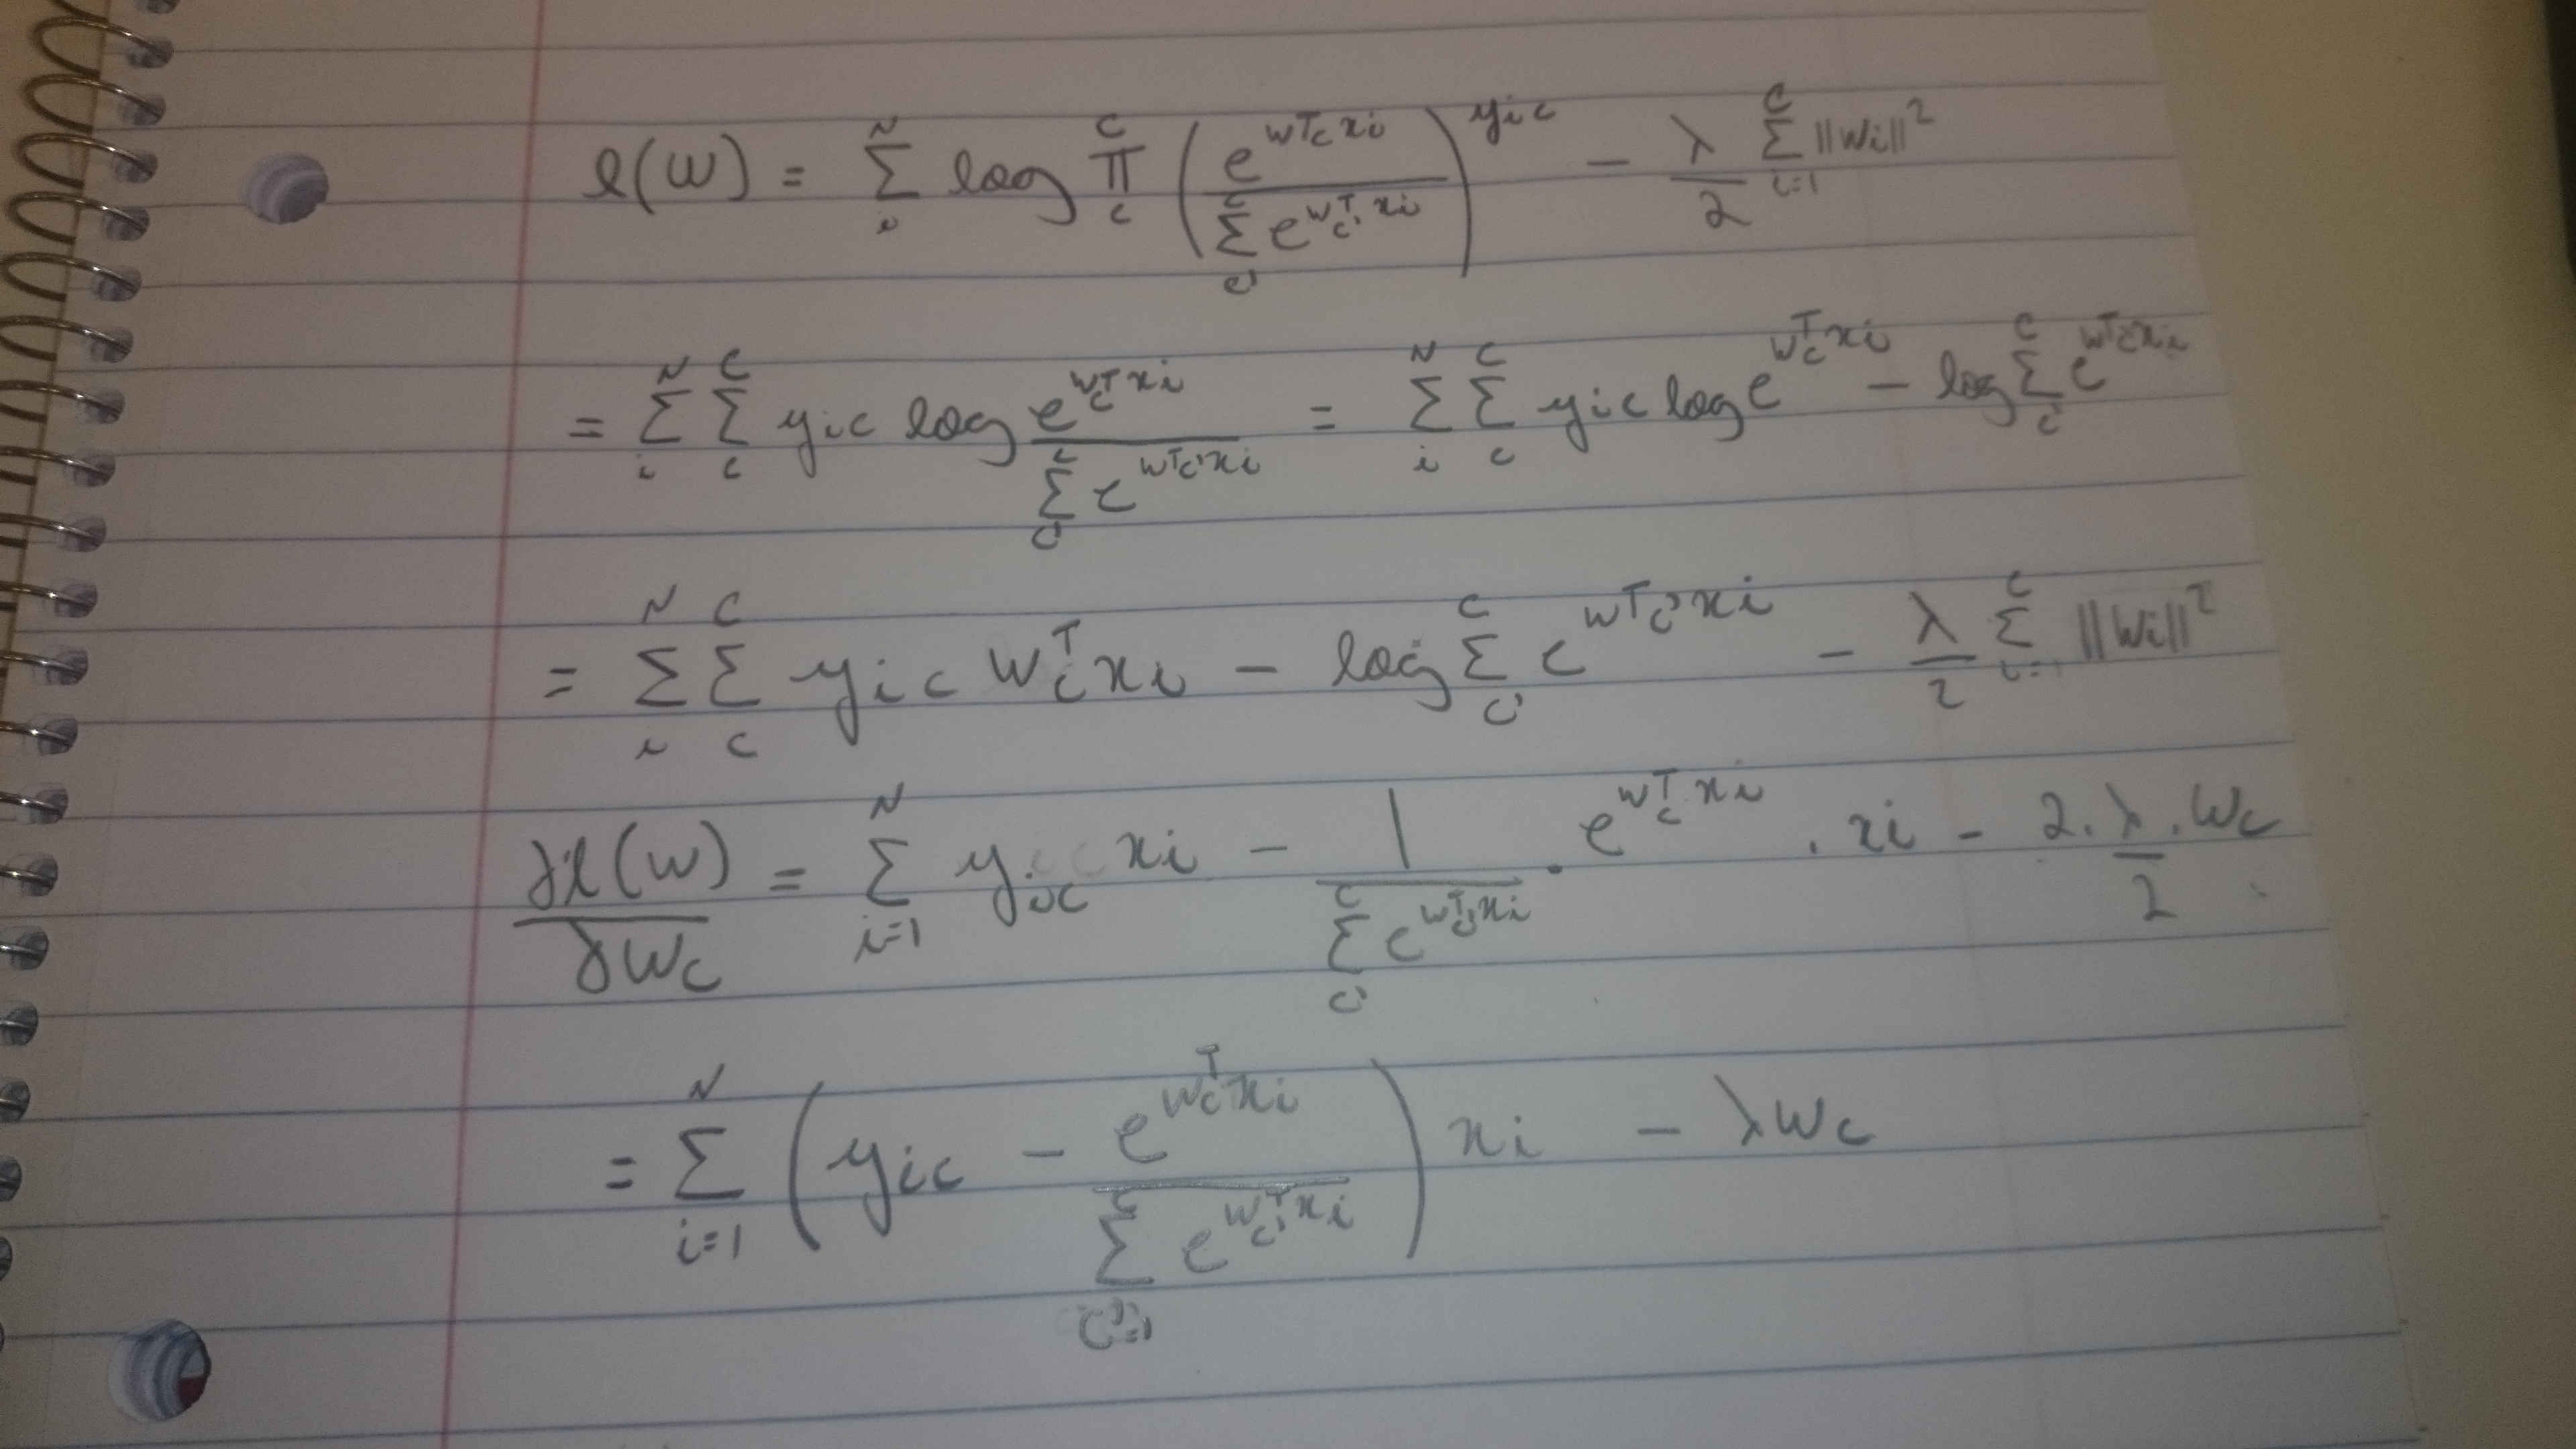 l(W) = Σ_i^N log Π_c^C ( e^{w_c^T x_i} / Σ_{c'}^C e^{w_{c'}^T x_i} )^{y_{ic}} − λ/2 Σ_{i=1}^C ||W_i||^2
= Σ_i^N Σ_c^C y_{ic} log e^{w_c^T x_i} / Σ_{c'}^C e^{w_{c'}^T x_i} = Σ_i^N Σ_c^C y_{ic} log e^{w_c^T x_i} − log Σ_{c'}^C e^{w_{c'}^T x_i}
= Σ_i^N Σ_c^C y_{ic} w_c^T x_i − log Σ_{c'}^C e^{w_{c'}^T x_i} − λ/2 Σ_{i=1}^C ||W_i||^2
∂l(W)/∂W_c = Σ_{i=1}^N y_{ic} x_i − 1 / Σ_{c'}^C e^{w_{c'}^T x_i} · e^{w_c^T x_i} · x_i − 2 · λ/2 · W_c
= Σ_{i=1}^N ( y_{ic} − e^{w_c^T x_i} / Σ_{c'=1}^C e^{w_{c'}^T x_i} ) x_i − λ W_c